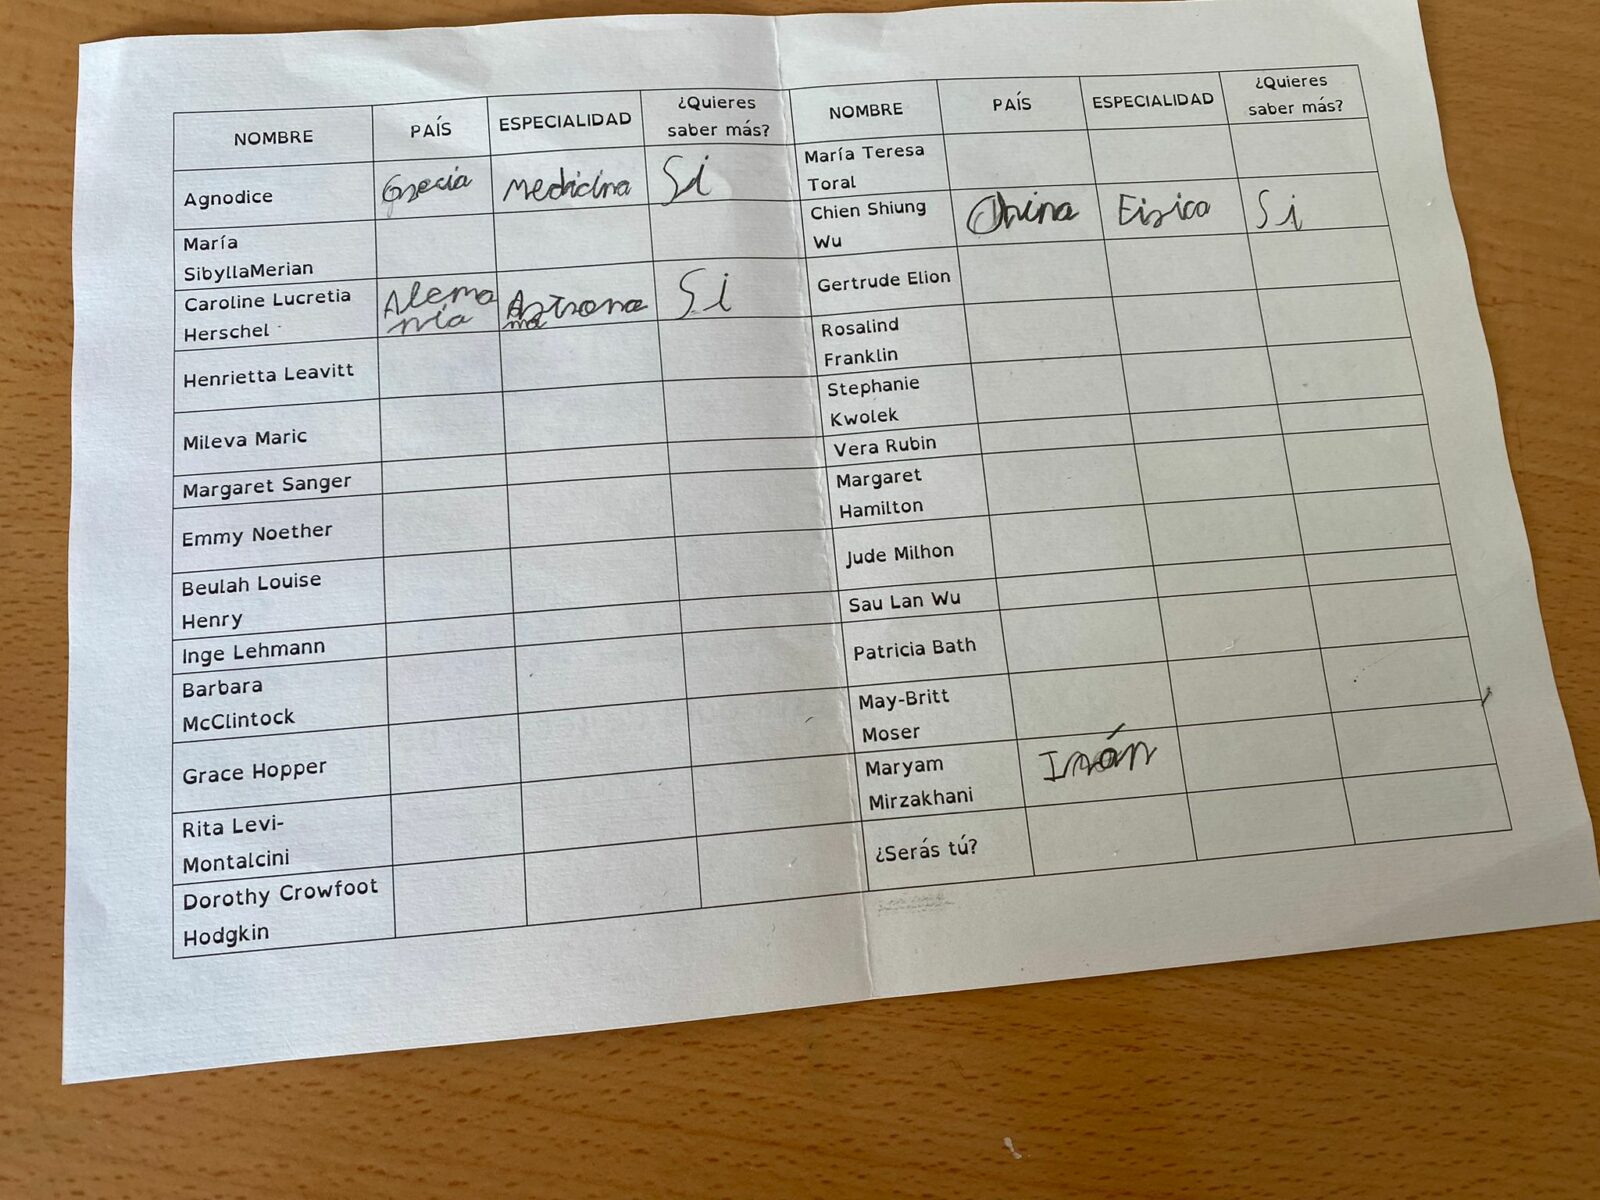 NOMBRE PAÍS ESPECIALIDAD ¿Quieres saber más?
Agnodice Grecia Medicina Si
María
SibyllaMerian
Caroline Lucretia Alema Astrono Si
Herschel nia ma
Henrietta Leavitt
Mileva Maric
Margaret Sanger
Emmy Noether
Beulah Louise
Henry
Inge Lehmann
Barbara
McClintock
Grace Hopper
Rita Levi-
Montalcini
Dorothy Crowfoot
Hodgkin
NOMBRE PAÍS ESPECIALIDAD ¿Quieres saber más?
María Teresa
Toral
Chien Shiung China Fisica Si
Wu
Gertrude Elion
Rosalind
Franklin
Stephanie
Kwolek
Vera Rubin
Margaret
Hamilton
Jude Milhon
Sau Lan Wu
Patricia Bath
May-Britt
Moser
Maryam Irán
Mirzakhani
¿Serás tú?